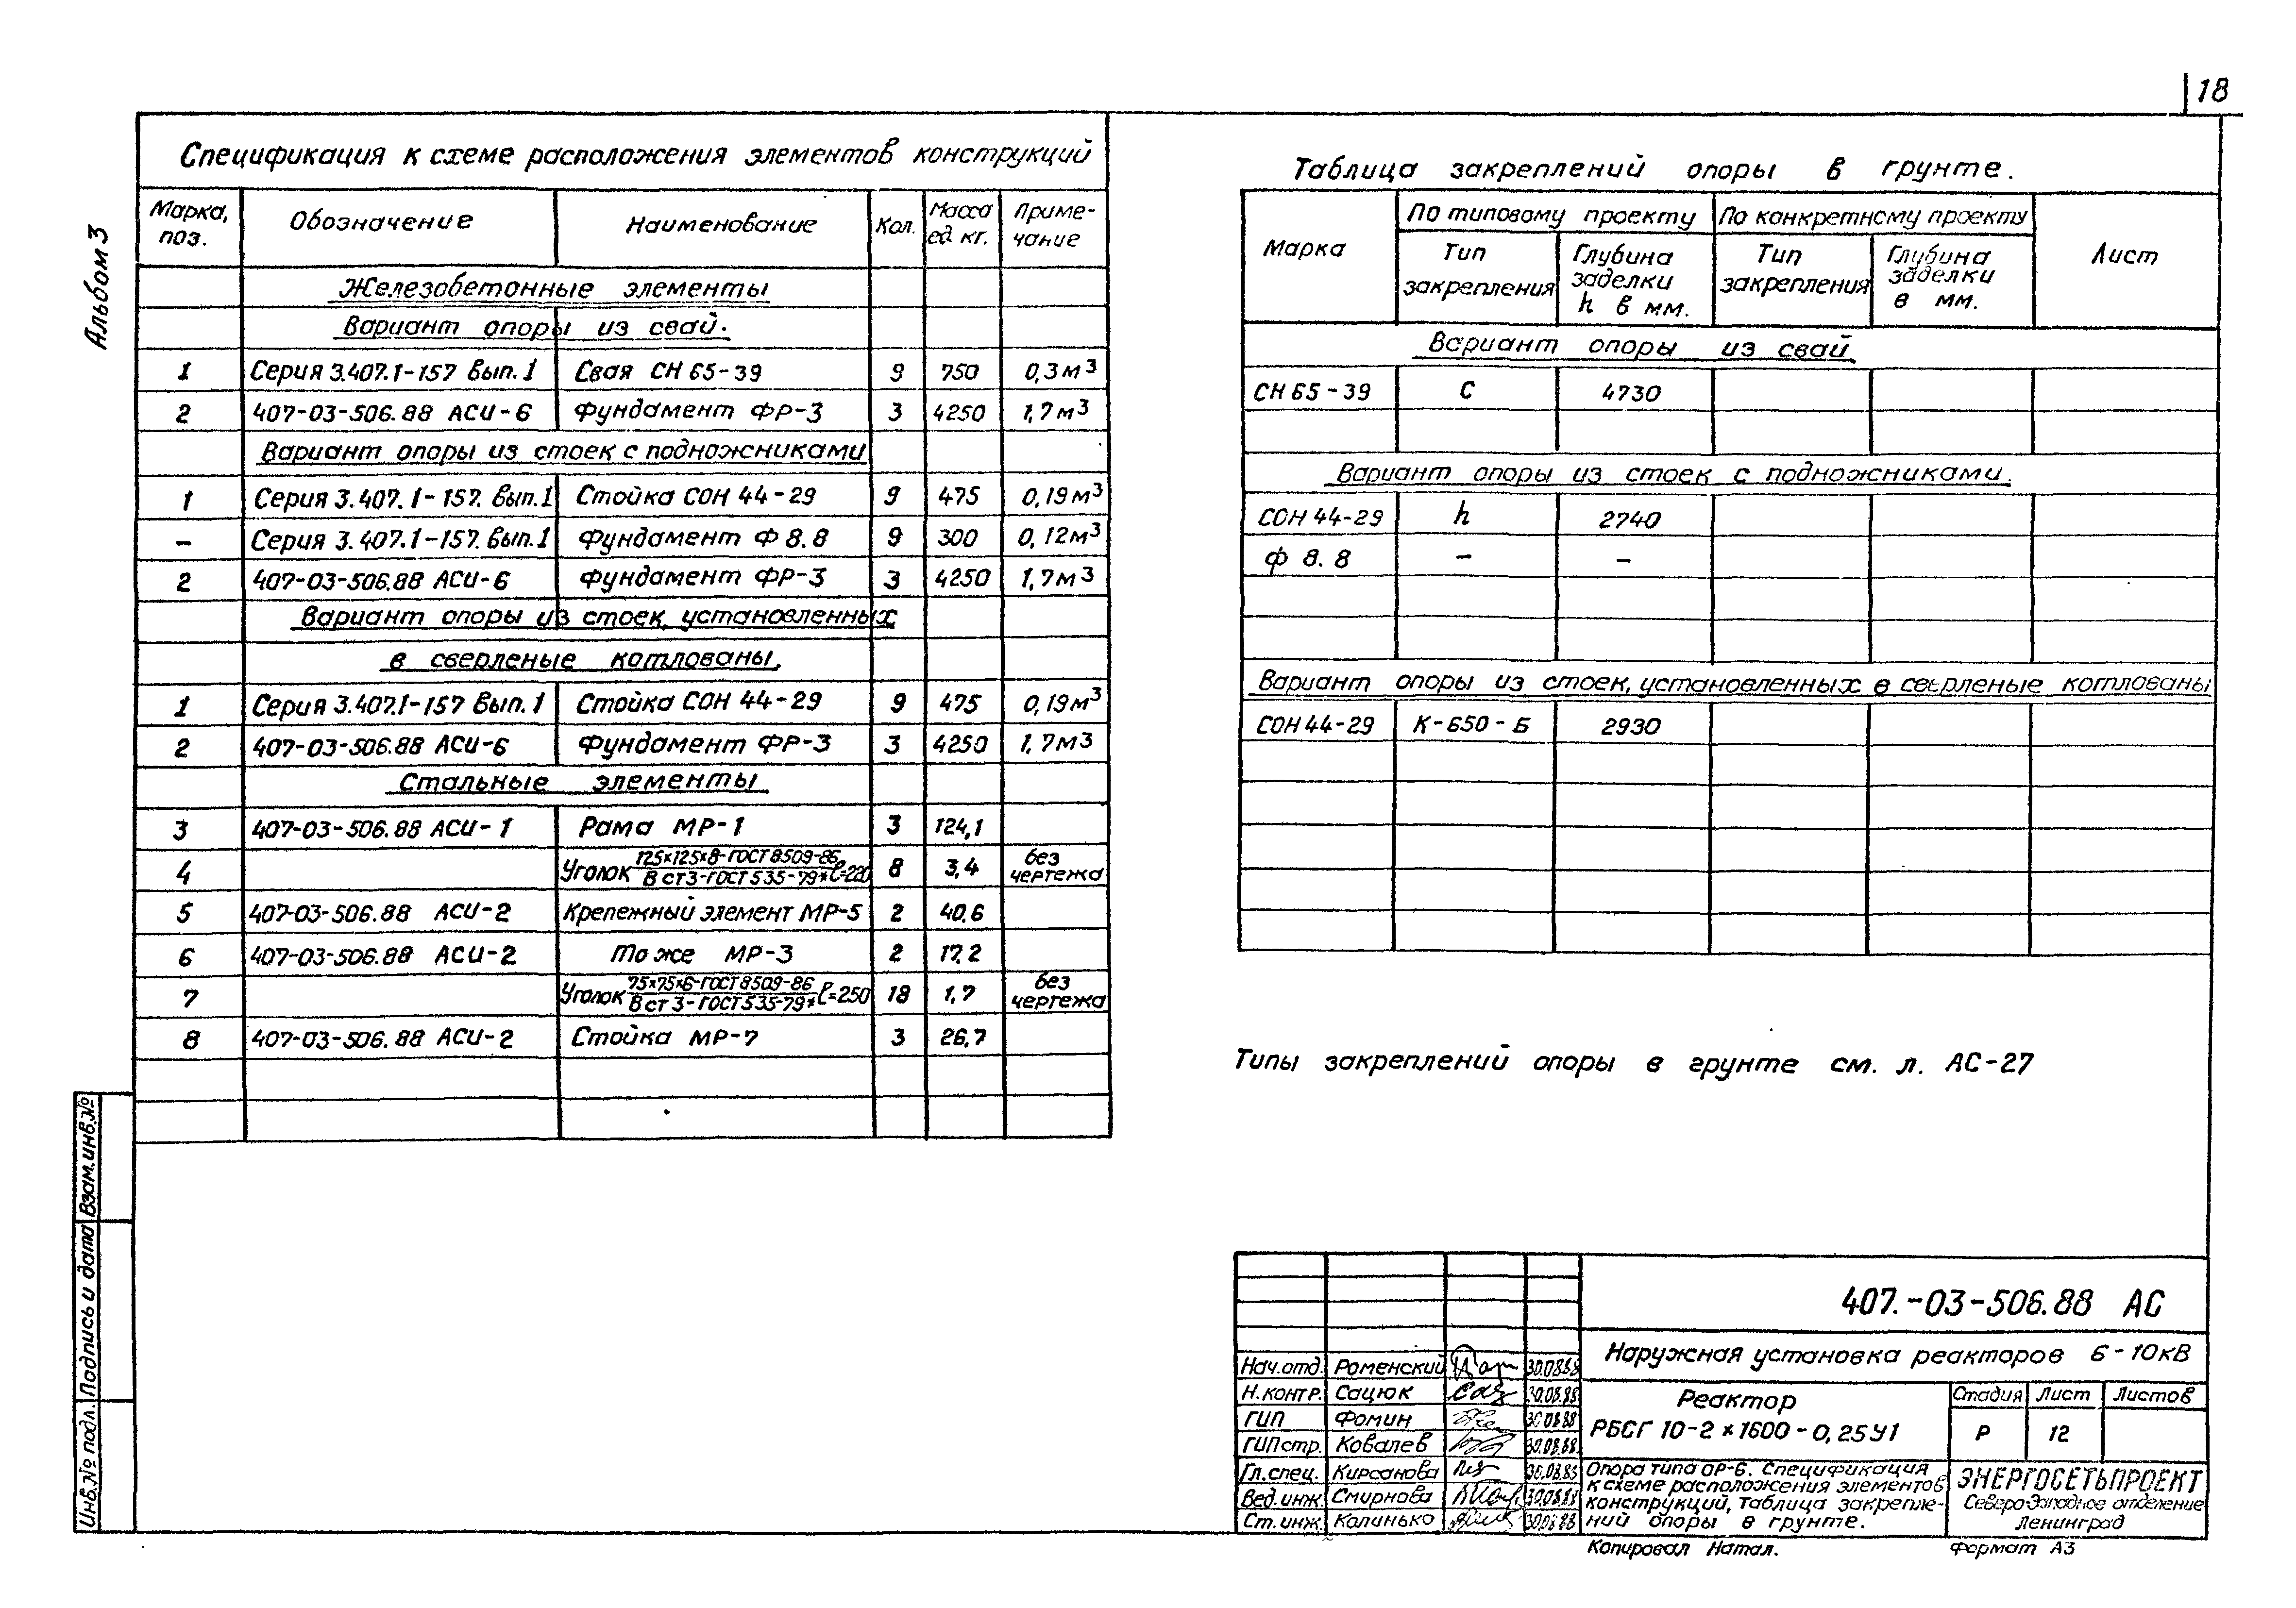 18
Альбом 3
Спецификация к схеме расположения элементов конструкций
Марка, поз. Обозначение Наименование Кол. Масса ед. кг. Приме-чание
Железобетонные элементы
Вариант опоры из свай.
1 Серия 3.407.1-157 Вып.1 Свая СН 65-39 9 750 0,3м³
2 407-03-506.88 АСИ-6 Фундамент ФР-3 3 4250 1,7м³
Вариант опоры из стоек с подножниками
1 Серия 3.407.1-157. Вып.1 Стойка СОН 44-29 9 475 0,19м³
– Серия 3.407.1-157. Вып.1 Фундамент Ф 8.8 9 300 0,12м³
2 407-03-506.88 АСИ-6 Фундамент ФР-3 3 4250 1,7м³
Вариант опоры из стоек, установленных
в сверленые котлованы.
1 Серия 3.407.1-157 Вып.1 Стойка СОН 44-29 9 475 0,19м³
2 407-03-506.88 АСИ-6 Фундамент ФР-3 3 4250 1,7м3
Стальные элементы
3 407-03-506.88 АСИ-1 Рама МР-1 3 124,1
4 Уголок 125×125×8-ГОСТ 8509-86 / В ст3-ГОСТ 535-79* 8 3,4 без чертежа
5 407-03-506.88 АСИ-2 Крепежный элемент МР-5 2 40,6
6 407-03-506.88 АСИ-2 То же МР-3 2 17,2
7 Уголок 75×75×6-ГОСТ 8509-86 / В ст 3-ГОСТ 535-79* ℓ=250 18 1,7 без чертежа
8 407-03-506.88 АСИ-2 Стойка МР-7 3 26,7
Таблица закреплений опоры в грунте.
Марка По типовому проекту По конкретному проекту Лист
Тип закрепления Глубина заделки h в мм. Тип закрепления Глубина заделки в мм.
Вариант опоры из свай
СН 65-39 С 4730
Вариант опоры из стоек с подножниками.
СОН 44-29 h 2740
ф 8.8 – –
Вариант опоры из стоек, установленных в сверленые котлованы
СОН 44-29 К-650-Б 2930
Типы закреплений опоры в грунте см. л. АС-27
Взам.инв.№
Подпись и дата
Инв.№ подл.
407.-03-506.88 АС
Наружная установка реакторов 6-10кВ
Нач.отд. Роменский 30.08.88
Н.контр. Сацюк 30.08.88
ГИП Фомин 30.08.88
ГИПстр. Ковалев 30.08.88
Гл.спец. Кирсанова 30.08.88
Вед.инж. Смирнова 30.08.88
Ст.инж. Калинько 30.08.88
Реактор
РБСГ 10-2×1600-0,25У1
Стадия Лист Листов
Р 12
Опора типа ОР-6. Спецификация
к схеме расположения элементов
конструкций, таблица закрепле-
ний опоры в грунте.
ЭНЕРГОСЕТЬПРОЕКТ
Северо-Западное отделение
Ленинград
Копировал Натал.
Формат А3